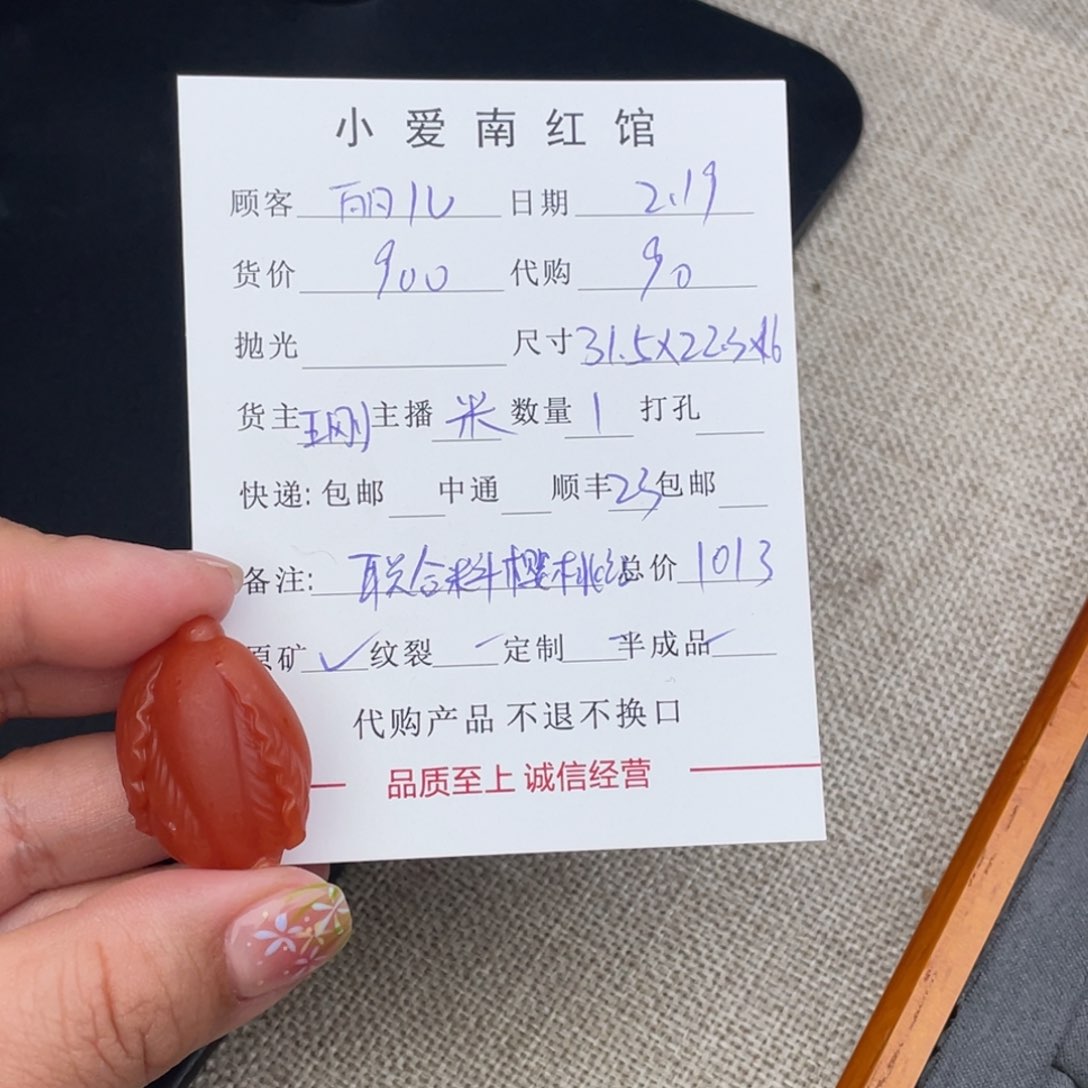 小爱南红馆
顾客 丽儿 日期 2.19
货价 900 代购 90
抛光 尺寸 31.5x22.5x16
货主 王刚 主播 米 数量 1 打孔
快递: 包邮 中通 顺丰 23 包邮
备注: 联合料樱桃红 总价 1013
原矿 ✓ 纹裂 定制 半成品
代购产品 不退不换口
品质至上 诚信经营